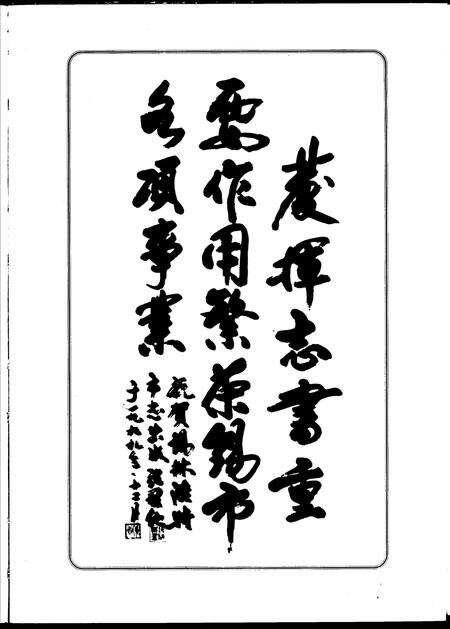 發揮志書重
要作用繁荣錫市
各項事業
祝賀錫林浩特
市志出版
于一九九九年十二月